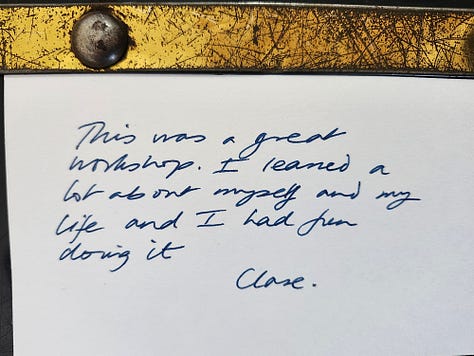 This was a great
workshop. I learned a
lot about myself and my
life and I had fun
doing it
Clare.